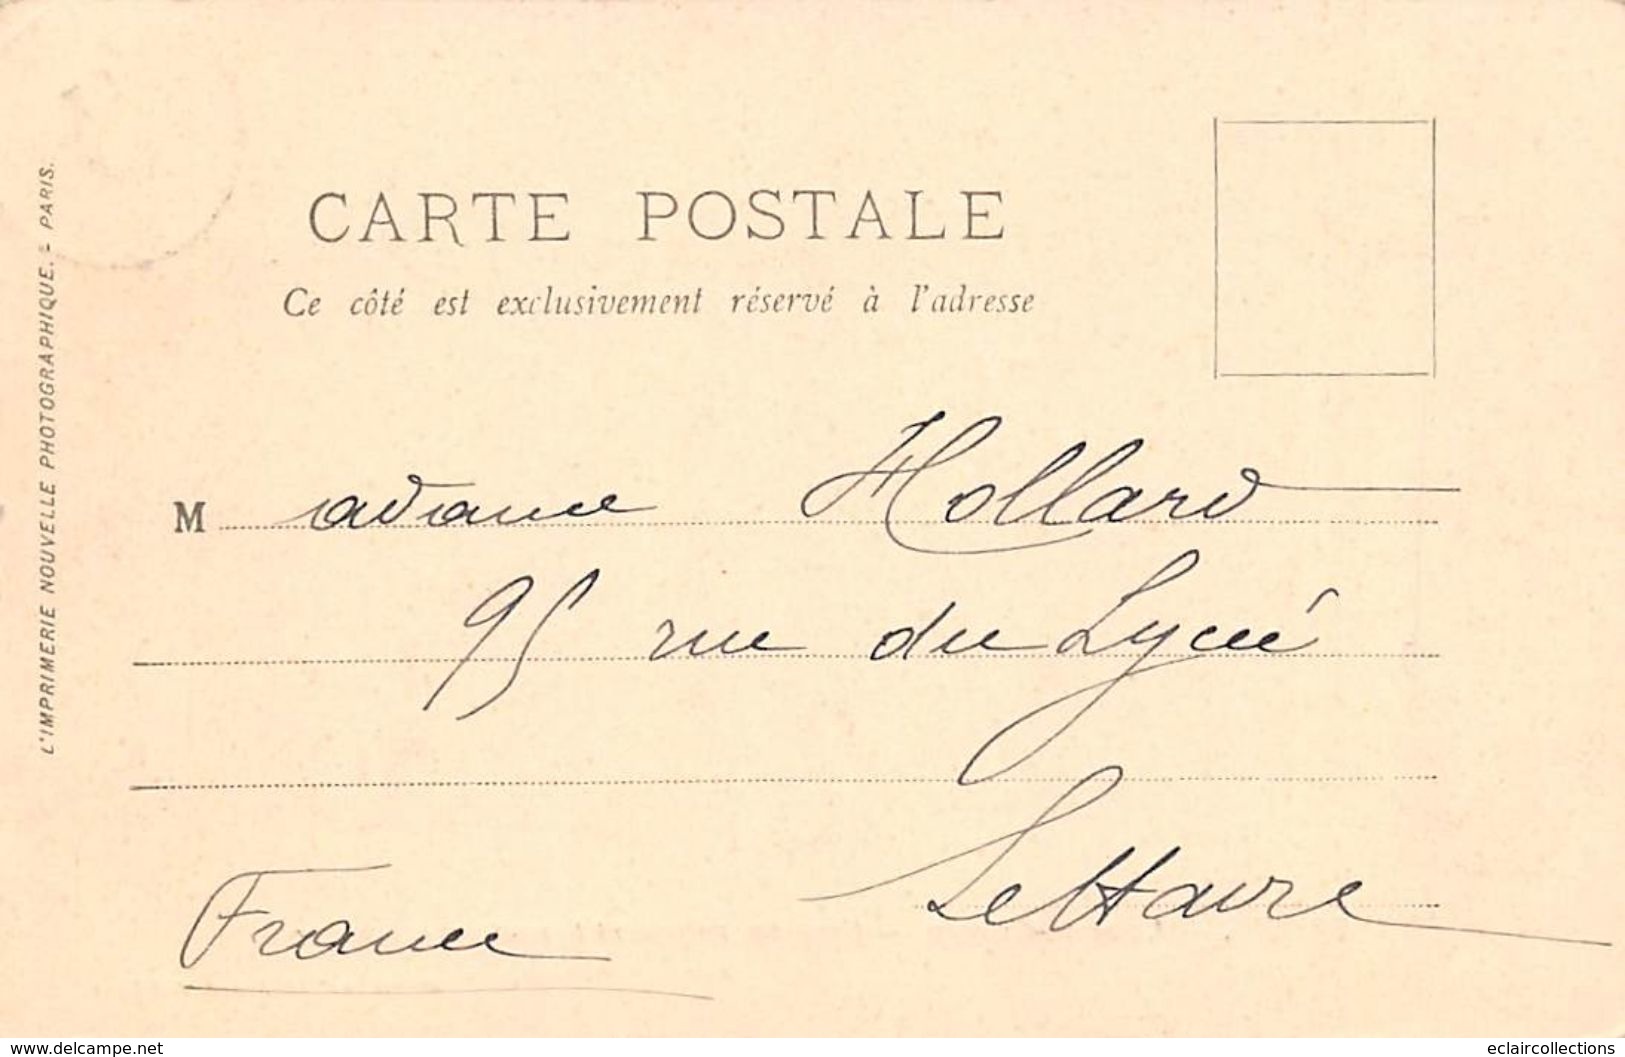 CARTE POSTALE
Ce côté est exclusivement réservé à l'adresse
L'IMPRIMERIE NOUVELLE PHOTOGRAPHIQUE. - PARIS.
Madame Hollard
95 rue du Lyceé
Le Havre
France
www.delcampe.net
eclaircollections